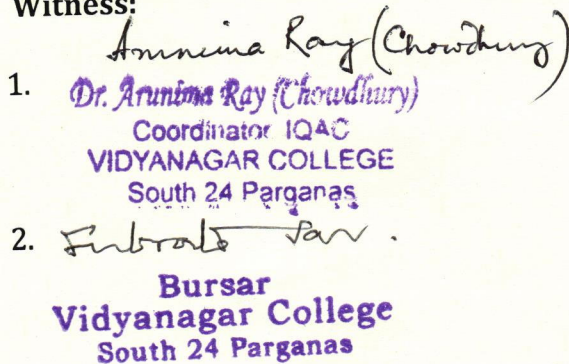 Witness:
Arunima Ray (Chowdhury)
1.
Dr. Arunima Ray (Chowdhury)
Coordinator IQAC
VIDYANAGAR COLLEGE
South 24 Parganas
2. Subrata
Bursar
Vidyanagar College
South 24 Parganas